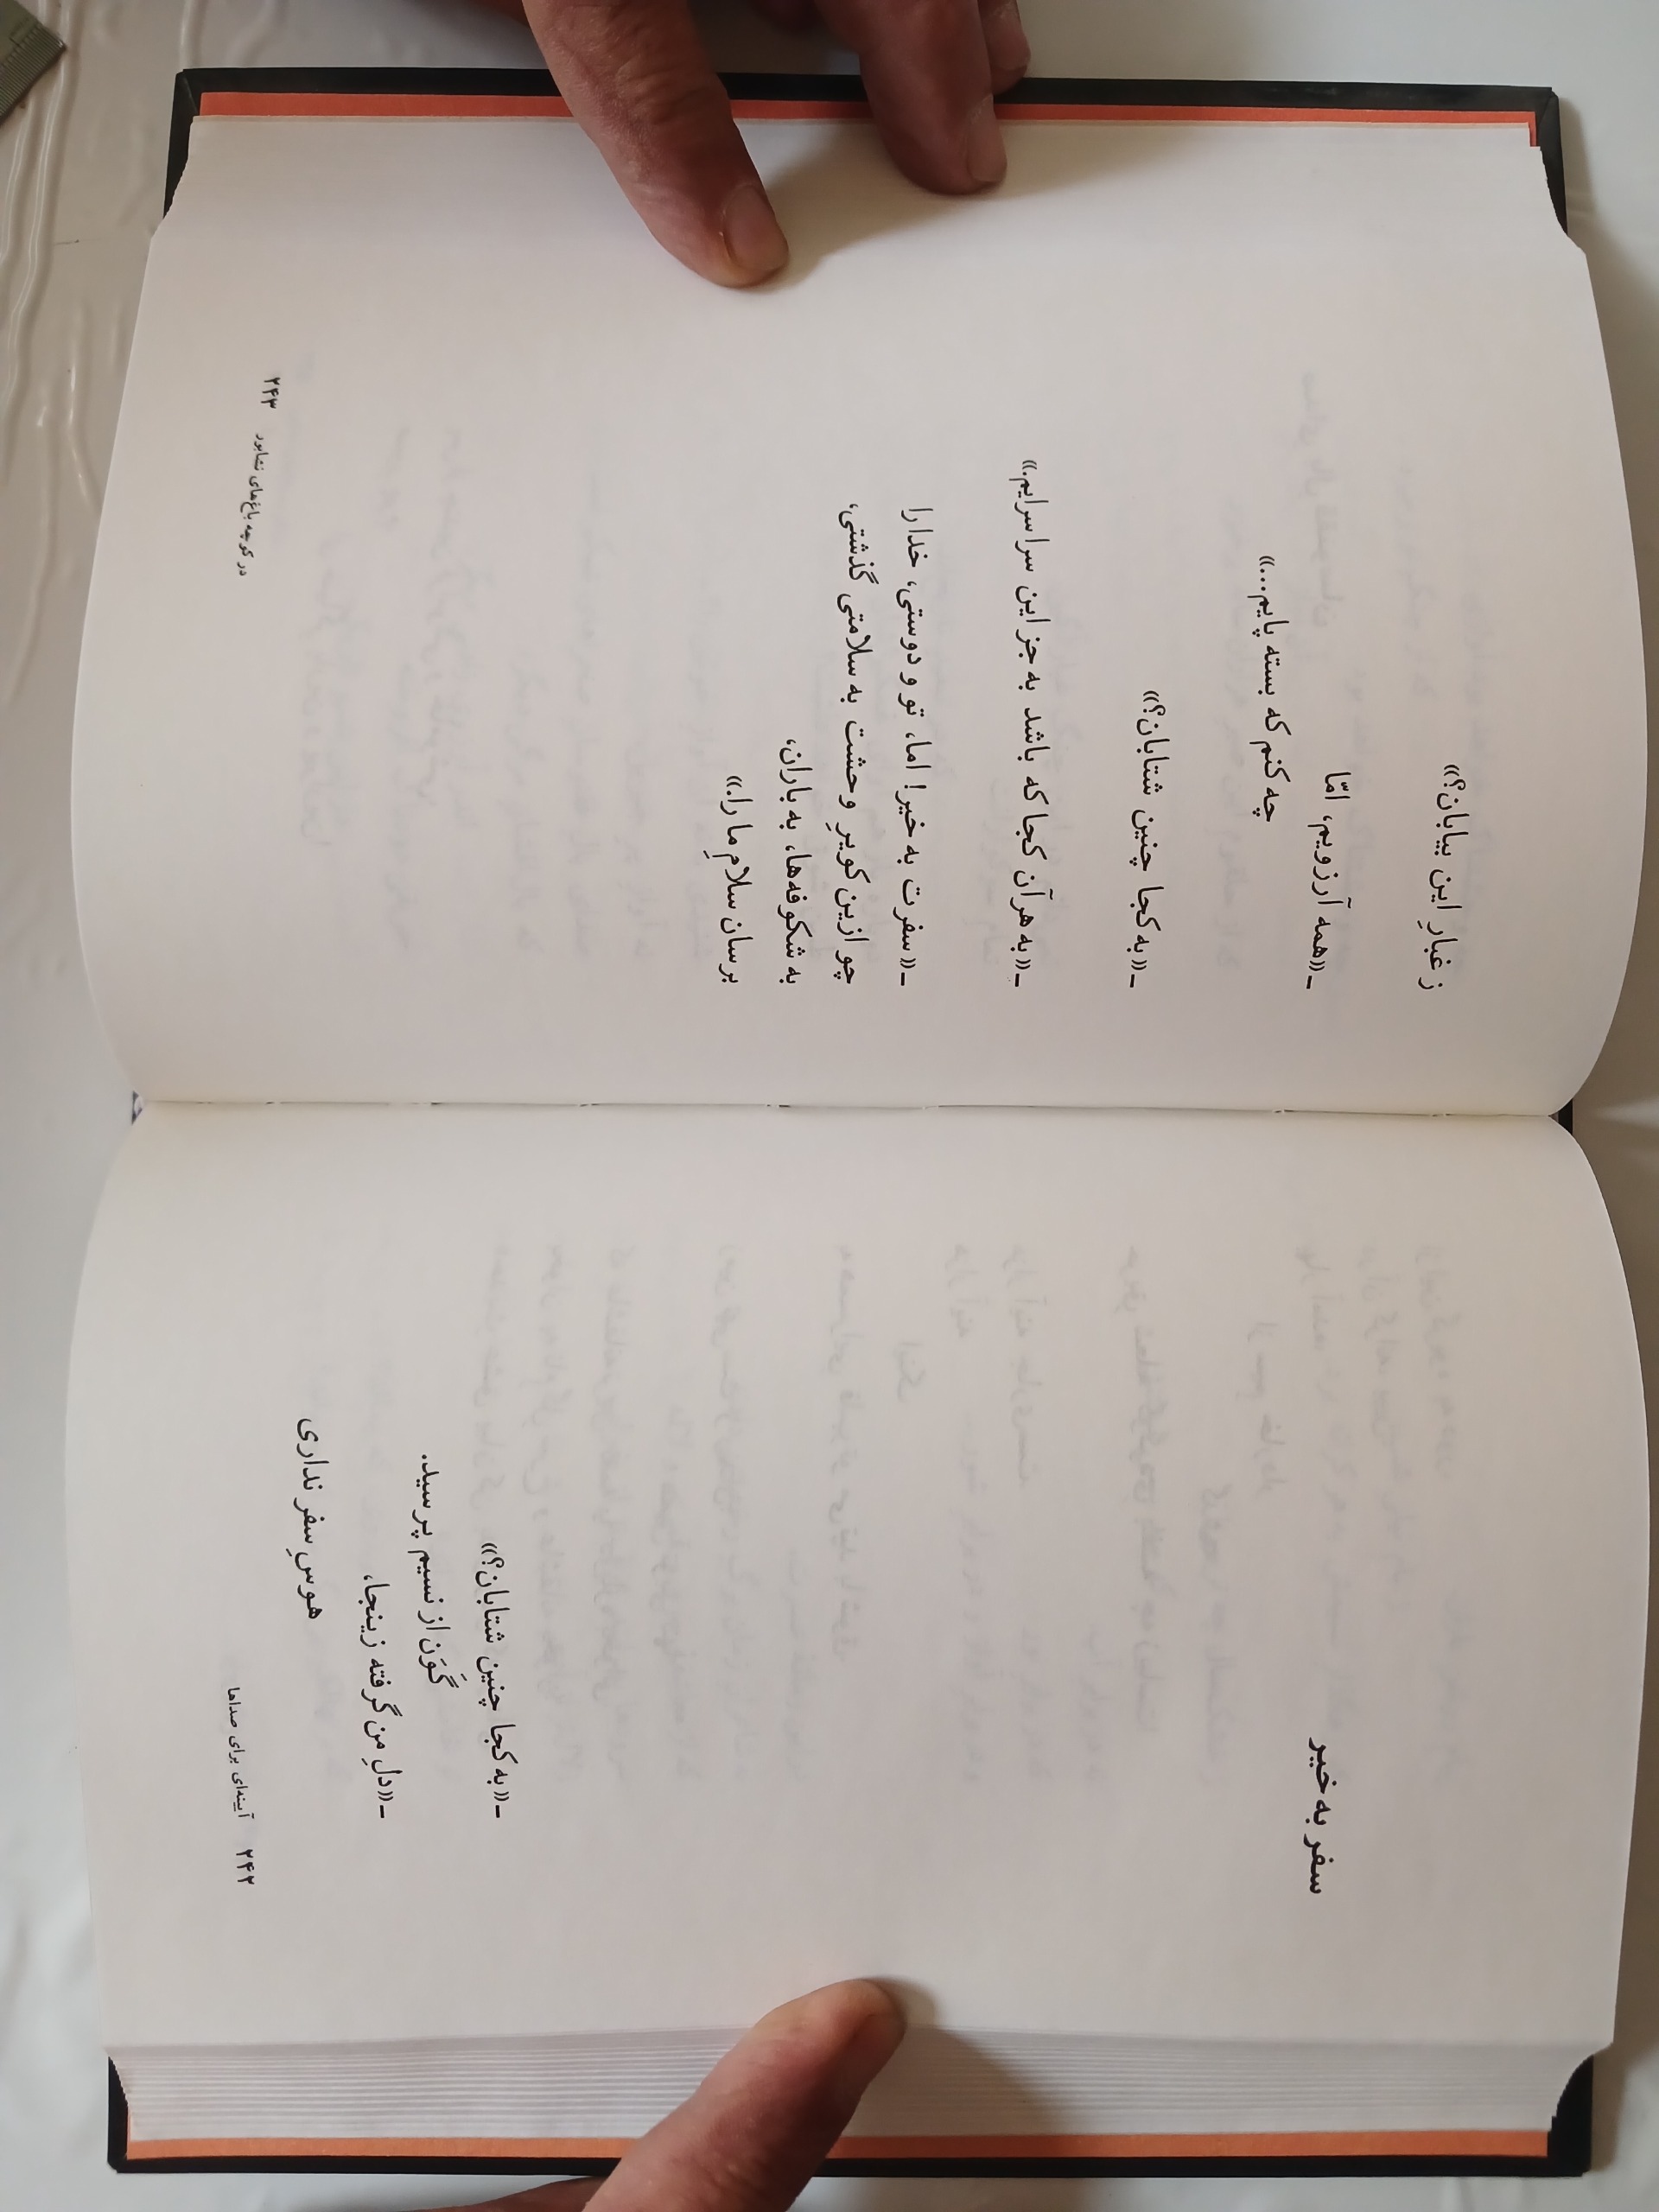 سفر به خیر
ـ«به کجا چنین شتابان؟»
گَوَن از نسیم پرسید.
ـ«دلِ من گرفته زینجا،
هوسِ سفر نداری
۲۴۲ آیینه‌ای برای صداها
ز غبارِ این بیابان؟»
ـ«همه آرزویم، امّا
چه کنم که بسته پایم...»
ـ«به کجا چنین شتابان؟»
ـ«به هر آن کجا که باشد به جز این سرا سرایم.»
ـ«سفرت به خیر! اما، تو و دوستی، خدا را
چو ازین کویرِ وحشت به سلامتی گذشتی،
به شکوفه‌ها، به باران،
برسان سلامِ ما را.»
در کوچه باغ‌های نشابور ۲۴۳